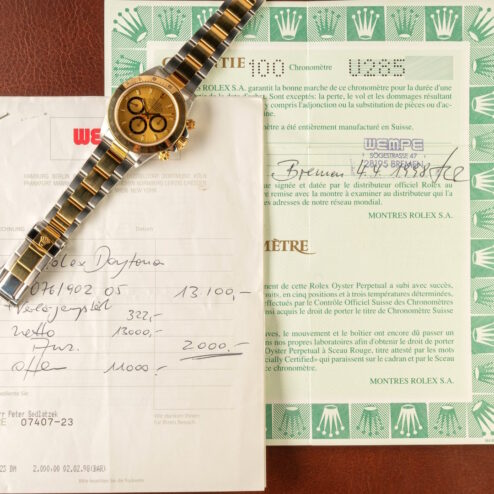 GARANTIE 100 Chronomètre U285
MONTRES ROLEX S.A. garantit la bonne marche de ce chronomètre pour la durée d'une
de la date d'achat. Sont exceptés: la perte, le vol et les dommages résultant
y compris l'adjonction ou la substitution de pièces ou d'ac-
a été entièrement manufacturé en Suisse.
WEMPE
SÖGESTRASSE 47
28195 BREMEN
Bremen 4.9.1998
signée et datée par le distributeur officiel Rolex au
remise avec la montre à examiner au distributeur qui l'a
adresses de notre réseau mondial.
MONTRES ROLEX S.A.
MÈTRE
de cette Rolex Oyster Perpetual a subi avec succès,
en cinq positions et à trois températures déterminées,
effectués par le Contrôle Officiel Suisse des Chronomètres
droit de porter le titre de Chronomètre Suisse
le mouvement et le boîtier ont encore dû passer un
nos propres laboratoires afin d'obtenir le droit de porter
Oyster Perpetual à Sceau Rouge, titre attesté par les mots
Certified» qui paraissent sur le cadran et par le Sceau
ce chronomètre.
MONTRES ROLEX S.A.
WEMPE
HAMBURG BERLIN DORTMUND KÖLN
FRANKFURT
RECHNUNG Datum
Rolex Daytona
0761902 05 13.100,-
322,-
netto 13000,-
Anz. 2000,-
offen 11.000,-
Herr Peter Sedlatzek
07407-23
23 DM 2.000:00 02.02.98(BAR)